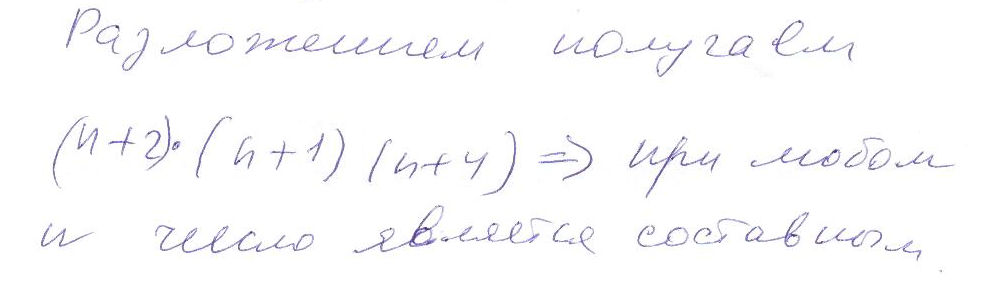 Разложением получаем
(n+2)·(n+1)(n+4) ⇒ при любом
n число является составным